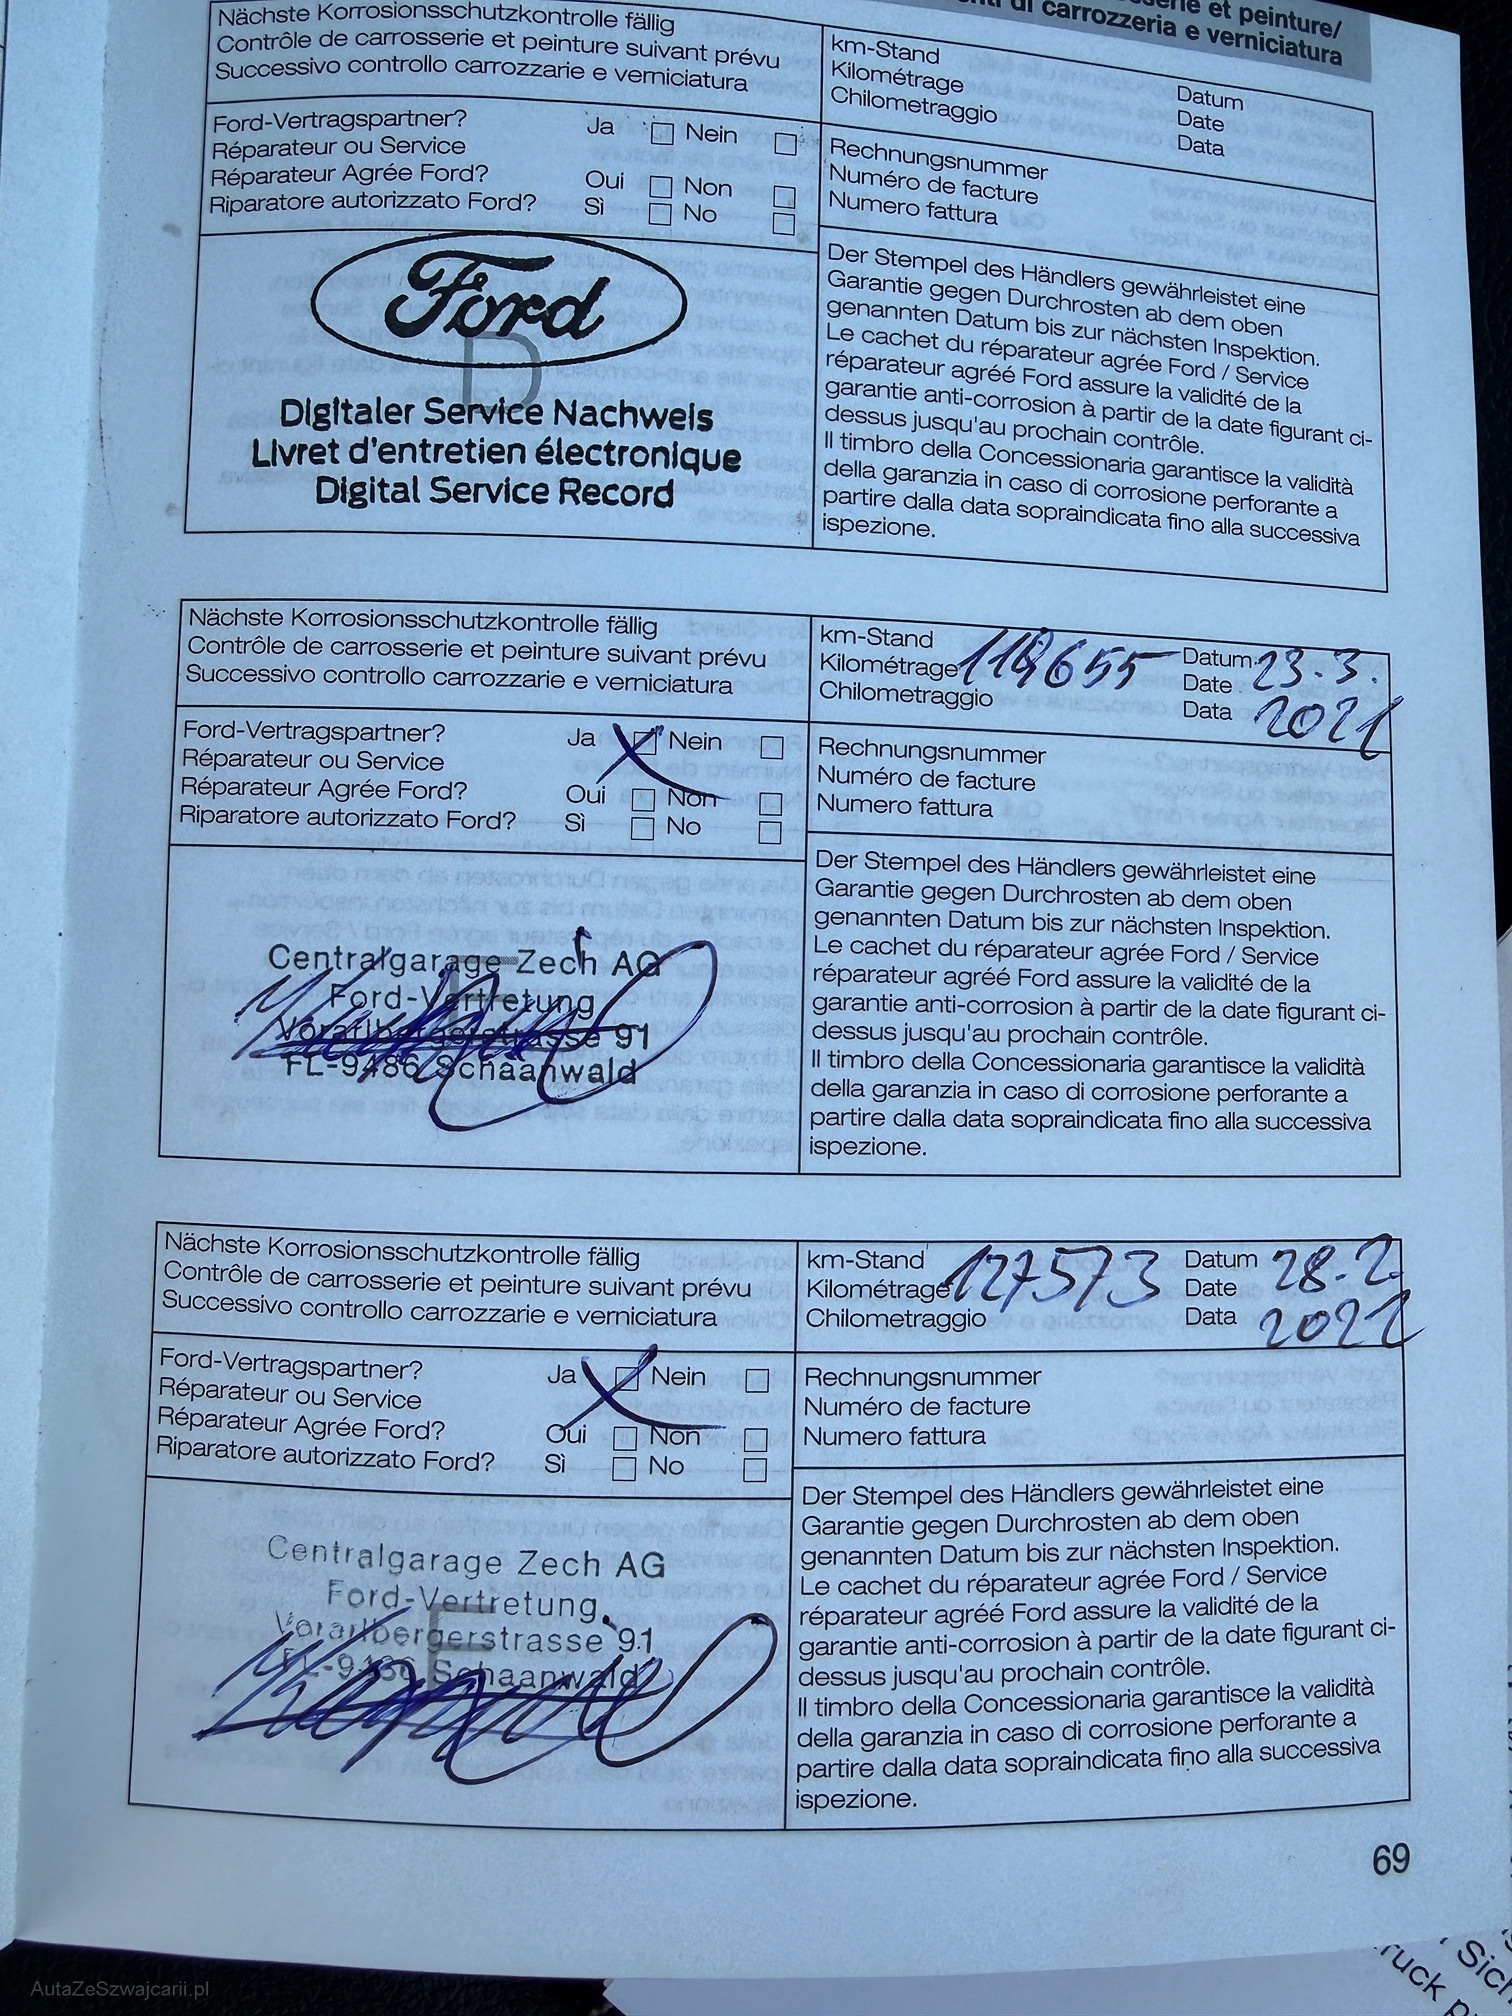 erie et peinture/
di carrozzeria e verniciatura
Nächste Korrosionsschutzkontrolle fällig
Contrôle de carrosserie et peinture suivant prévu
Successivo controllo carrozzarie e verniciatura
km-Stand
Kilométrage
Chilometraggio
Datum
Date
Data
Ford-Vertragspartner?
Réparateur ou Service
Réparateur Agrée Ford?
Riparatore autorizzato Ford?
Ja Nein
Oui Non
Sì No
Rechnungsnummer
Numéro de facture
Numero fattura
Ford
D
Digitaler Service Nachweis
Livret d'entretien électronique
Digital Service Record
Der Stempel des Händlers gewährleistet eine
Garantie gegen Durchrosten ab dem oben
genannten Datum bis zur nächsten Inspektion.
Le cachet du réparateur agrée Ford / Service
réparateur agréé Ford assure la validité de la
garantie anti-corrosion à partir de la date figurant ci-
dessus jusqu'au prochain contrôle.
Il timbro della Concessionaria garantisce la validità
della garanzia in caso di corrosione perforante a
partire dalla data sopraindicata fino alla successiva
ispezione.
Nächste Korrosionsschutzkontrolle fällig
Contrôle de carrosserie et peinture suivant prévu
Successivo controllo carrozzarie e verniciatura
km-Stand
Kilométrage
Chilometraggio
Datum 23.3.
Date
Data 2021
Ford-Vertragspartner?
Réparateur ou Service
Réparateur Agrée Ford?
Riparatore autorizzato Ford?
Ja Nein
Oui Non
Sì No
Rechnungsnummer
Numéro de facture
Numero fattura
Centralgarage Zech AG
Ford-Vertretung
Vorarlbergerstrasse 91
FL-9486 Schaanwald
Der Stempel des Händlers gewährleistet eine
Garantie gegen Durchrosten ab dem oben
genannten Datum bis zur nächsten Inspektion.
Le cachet du réparateur agrée Ford / Service
réparateur agréé Ford assure la validité de la
garantie anti-corrosion à partir de la date figurant ci-
dessus jusqu'au prochain contrôle.
Il timbro della Concessionaria garantisce la validità
della garanzia in caso di corrosione perforante a
partire dalla data sopraindicata fino alla successiva
ispezione.
Nächste Korrosionsschutzkontrolle fällig
Contrôle de carrosserie et peinture suivant prévu
Successivo controllo carrozzarie e verniciatura
km-Stand
Kilométrage 127573
Chilometraggio
Datum 28.2.
Date
Data 2022
Ford-Vertragspartner?
Réparateur ou Service
Réparateur Agrée Ford?
Riparatore autorizzato Ford?
Ja Nein
Oui Non
Sì No
Rechnungsnummer
Numéro de facture
Numero fattura
Centralgarage Zech AG
Ford-Vertretung
Vorarlbergerstrasse 91
FL-9486 Schaanwald
Der Stempel des Händlers gewährleistet eine
Garantie gegen Durchrosten ab dem oben
genannten Datum bis zur nächsten Inspektion.
Le cachet du réparateur agrée Ford / Service
réparateur agréé Ford assure la validité de la
garantie anti-corrosion à partir de la date figurant ci-
dessus jusqu'au prochain contrôle.
Il timbro della Concessionaria garantisce la validità
della garanzia in caso di corrosione perforante a
partire dalla data sopraindicata fino alla successiva
ispezione.
69
AutaZeSzwajcarii.pl